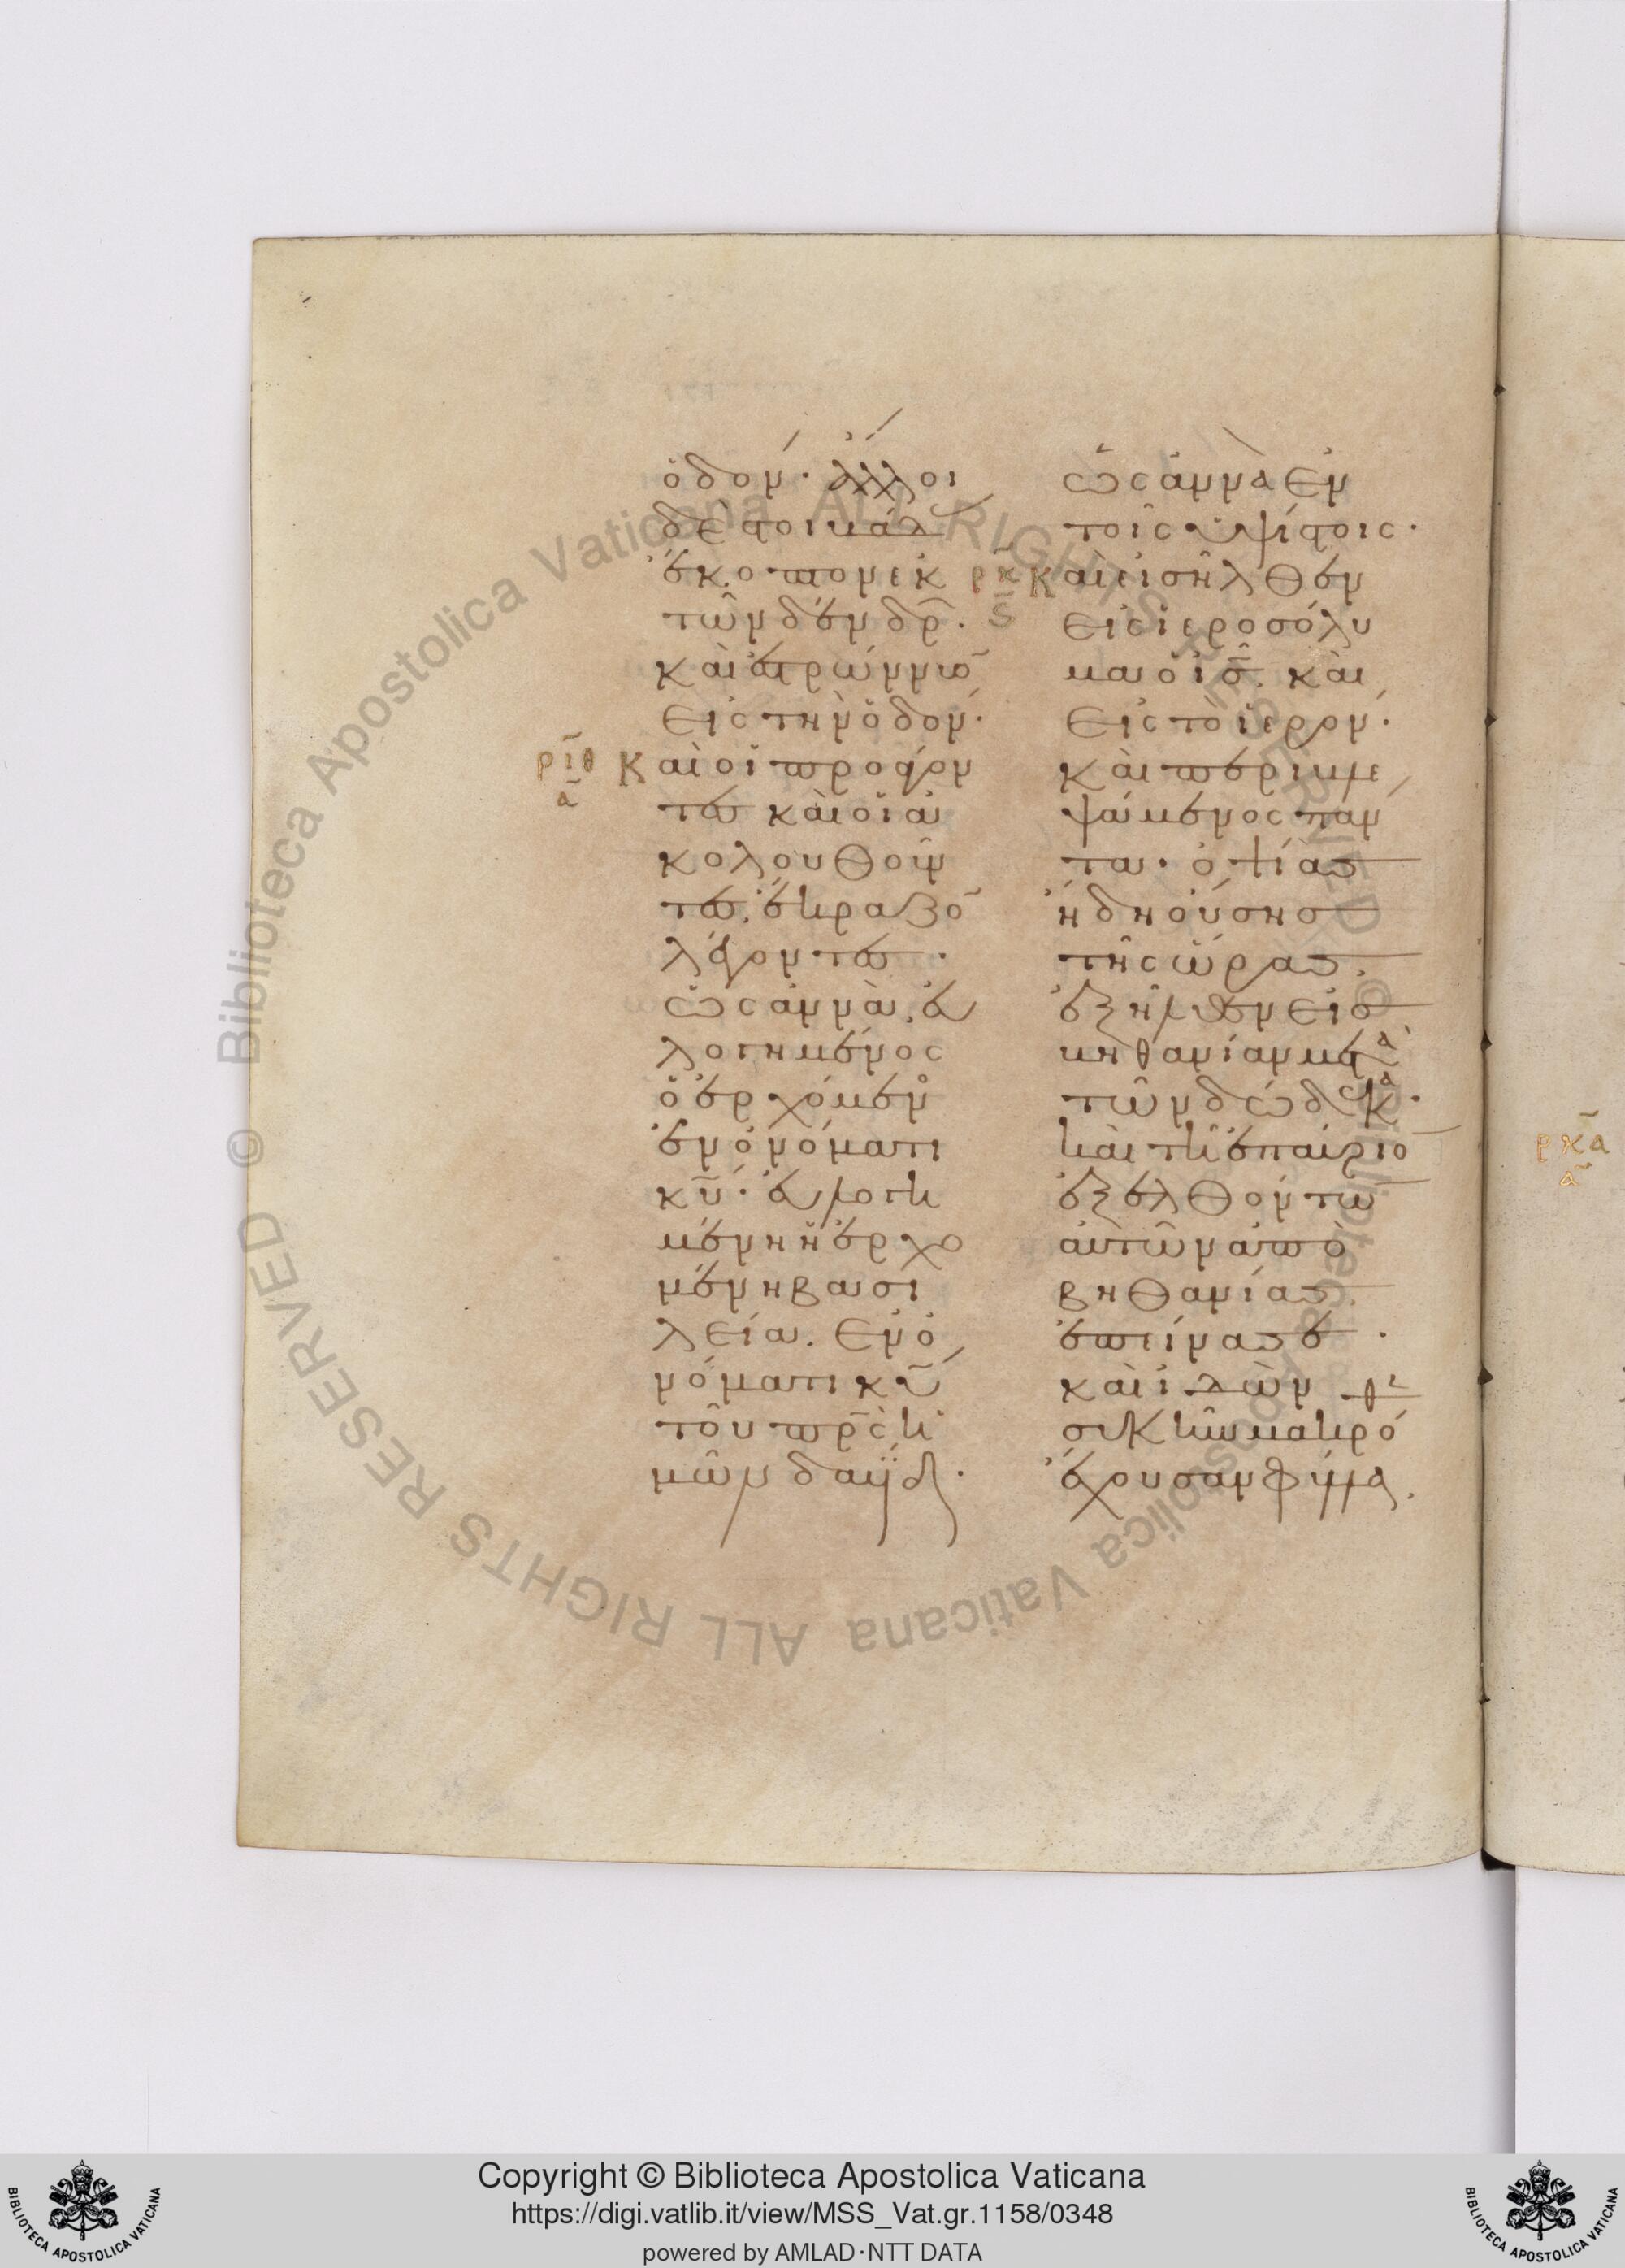 ὁδόν· ἄλλοι
δὲ στοιβάδ
ἔκοπτον ἐκ
τῶν δένδρ̅·
καὶ ἐστρώννυο̅
εἰς τὴν ὁδόν·
ρ̅ι̅θ Καὶ οἱ προάγον
α̅ τες καὶ οἱ ἀ
κολουθοῦν
τες. ἔκραζο̅
λέγοντες·
ὡσαννὰ. εὐ
λογημένος
ὁ ἐρχόμενο
ἐν ὀνόματι
κ̅υ̅· εὐλογη
μένη ἡ ἐρχο
μένη βασι
λεία. ἐν ὀ
νόματι κ̅υ̅
τοῦ π̅ρ̅ς̅ ἡ
μῶν δαυϊδ·
ὡσαννὰ ἐν
τοῖς ὑψίστοις·
ρ̅κ̅ Καὶ εἰσῆλθεν
ϛ̅ εἰς ἱεροσόλυ
μα ὁ ι̅ς̅. καὶ
εἰς τὸ ἱερόν·
καὶ περιβλε
ψάμενος πάν
τα· ὀψίας
ἤδη οὔσης
τῆς ὥρας.
ἐξῆλθεν εἰς
βηθανίαν μετὰ
τῶν δώδεκα·
καὶ τῆ ἐπαύριο̅
ἐξελθόντω̅
αὐτῶν ἀπὸ
βηθανίας
ἐπείνασε·
καὶ ἰδὼν
συκῆν μακρό
ἔχουσαν φύλλα.
ρ̅κ̅α
α̅
Copyright © Biblioteca Apostolica Vaticana
https://digi.vatlib.it/view/MSS_Vat.gr.1158/0348
powered by AMLAD·NTT DATA
BIBLIOTECA APOSTOLICA VATICANA
BIBLIOTECA APOSTOLICA VATICANA
© Biblioteca Apostolica Vaticana ALL RIGHTS RESERVED © Biblioteca Apostolica Vaticana ALL RIGHTS RESERVED